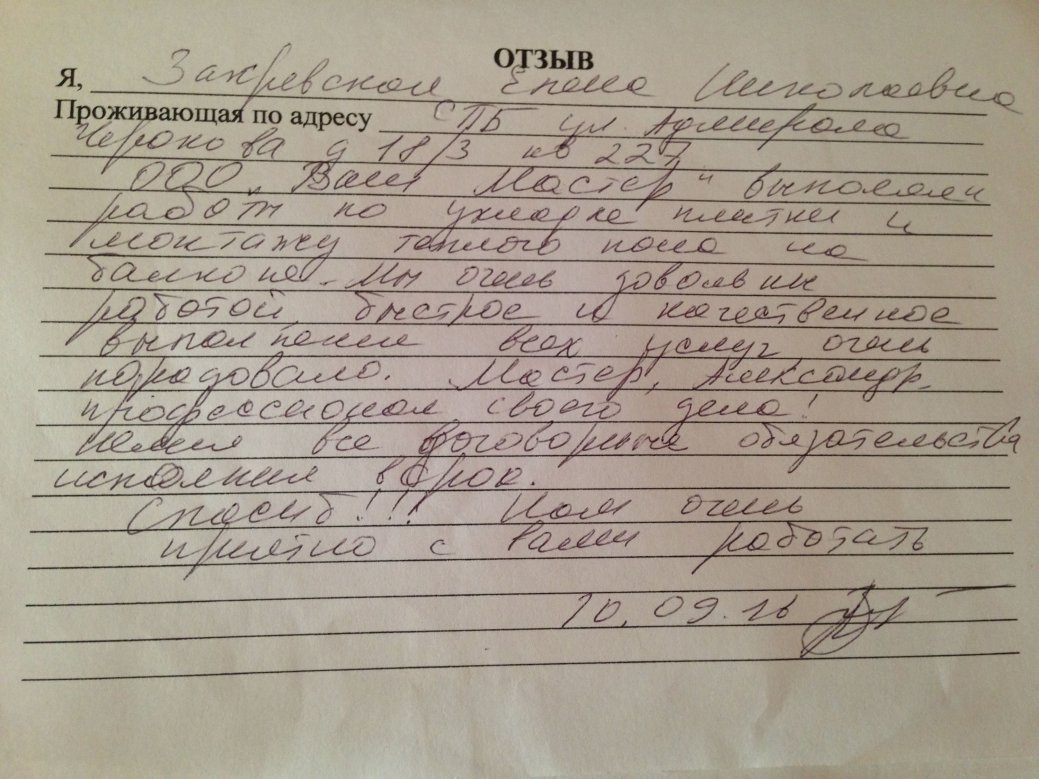 ОТЗЫВ
Я, Закревская Елена Николаевна
Проживающая по адресу СПБ ул. Адмирала
Черокова д 18/3 кв 227
ООО „Ваш Мастер" выполняли
работы по укладке плитки и
монтажу теплого пола на
балконе. Мы очень довольны
работой, быстрое и качественное
выполнение всех услуг очень
порадовало. Мастер, Александр,
профессионал своего дела!
все договорные обязательства
исполнил в срок.
Спасиб!!! Нам очень
приятно с Вами работать
10.09.16